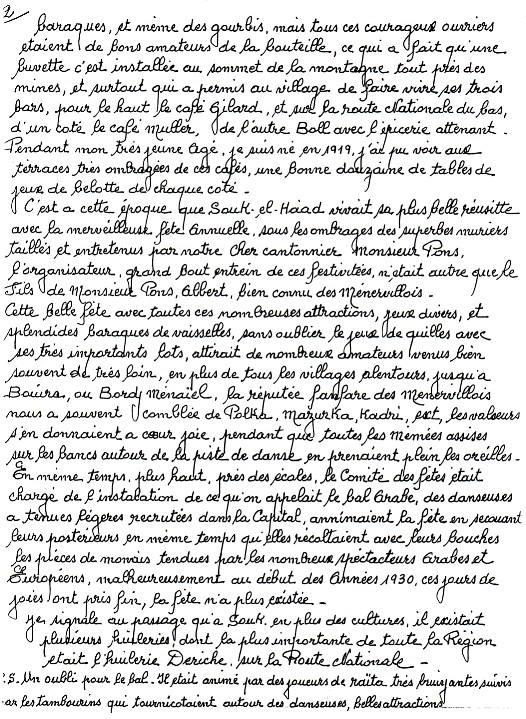 2/
baraques, et même des gourbis, mais tous ces courageux ouvriers
etaient de bons amateurs de la bouteille, ce qui a fait qu'une
buvette c'est installée au sommet de la montagne tout près des
mines, et surtout qui a permis au village de faire vivre ses trois
bars, pour le haut le café Gilard, et sur la route Nationale du bas,
d'un coté le café Muller, de l'autre Boll avec l'épicerie attenant -
Pendant mon très jeune agé, je suis né en 1919, j'ai pu voir aux
terraces très ombragées de ces cafés, une bonne douzaine de tables de
jeux de belotte de chaque coté -
C'est a cette époque que Souk-el-Haad vivait sa plus belle réusitte
avec la merveilleuse fête Annuelle, sous les ombrages des superbes muriers
taillés et entretenus par notre cher cantonnier Monsieur Pons,
l'organisateur, grand bout entrein de ces festivitées, n'était autre que le
fils de Monsieur Pons, Albert, bien connu des Ménervillois -
Cette belle fête avec toutes ces nombreuses attractions, jeux divers, et
splendides baraques de vaisselles, sans oublier le jeux de quilles avec
ses très importants lots, attirait de nombreux amateurs venus bien
souvent de très loin, en plus de tous les villages alentours, jusqu'a
Bouira, ou Bordj Ménaiel, la réputée fanfare des Ménervillois
nous a souvent comblée de Polka, Mazurka, Kadri, ext, les valseurs
s'en donnaient a cœur joie, pendant que toutes les mémées assises
sur les bancs autour de la piste de danse en prenaient plein les oreilles -
En même temps, plus haut, près des écoles, le Comité des fêtes était
chargé de l'instalation de ce qu'on appelait le bal Arabe, des danseuses
a tenues légeres recrutées dans la Capital, annimaient la fête en secouant
leurs postérieurs en même temps qu'elles récoltaient avec leurs bouches
les pièces de monais tendues par les nombreux spéctacteurs Arabes et
Européens, malheureusement au début des Années 1930, ces jours de
joies ont pris fin, la fête n'a plus existée -
je signale au passage qu'a Souk, en plus des cultures, il existait
plusieurs huileries, dont la plus importante de toute la Région
etait l'huilerie Deriche, sur la Route Nationale -
P.S. Un oubli pour le bal - Il etait animé par des joueurs de raïta très bruyantes suivis
par les tambourins qui tournicotaient autour des danseuses, belles attractions